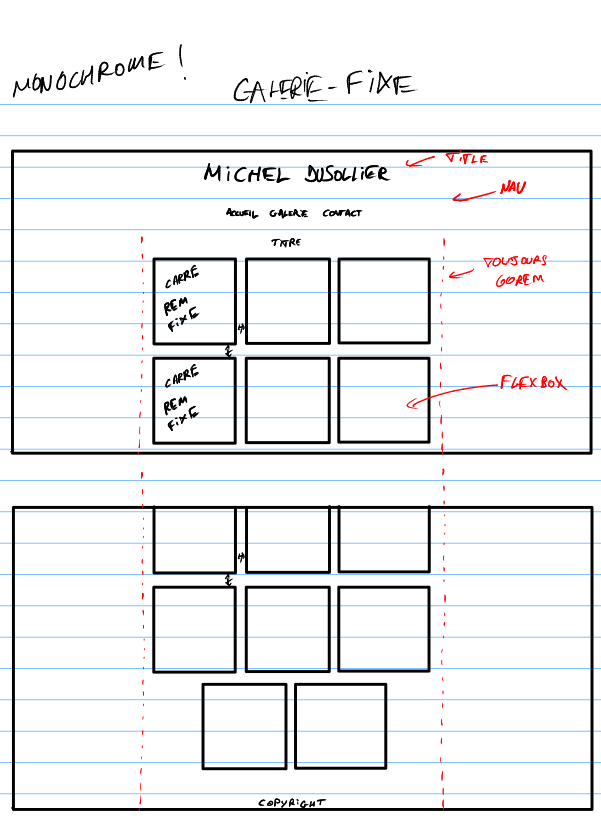 MONOCHROME !
GALERIE-FIXE
MICHEL DUSOLLIER
TITLE
NAV
ACCUEIL GALERIE CONTACT
TITRE
TOUJOURS
60REM
CARRE
REM
FIXE
CARRE
REM
FIXE
FLEXBOX
COPYRIGHT